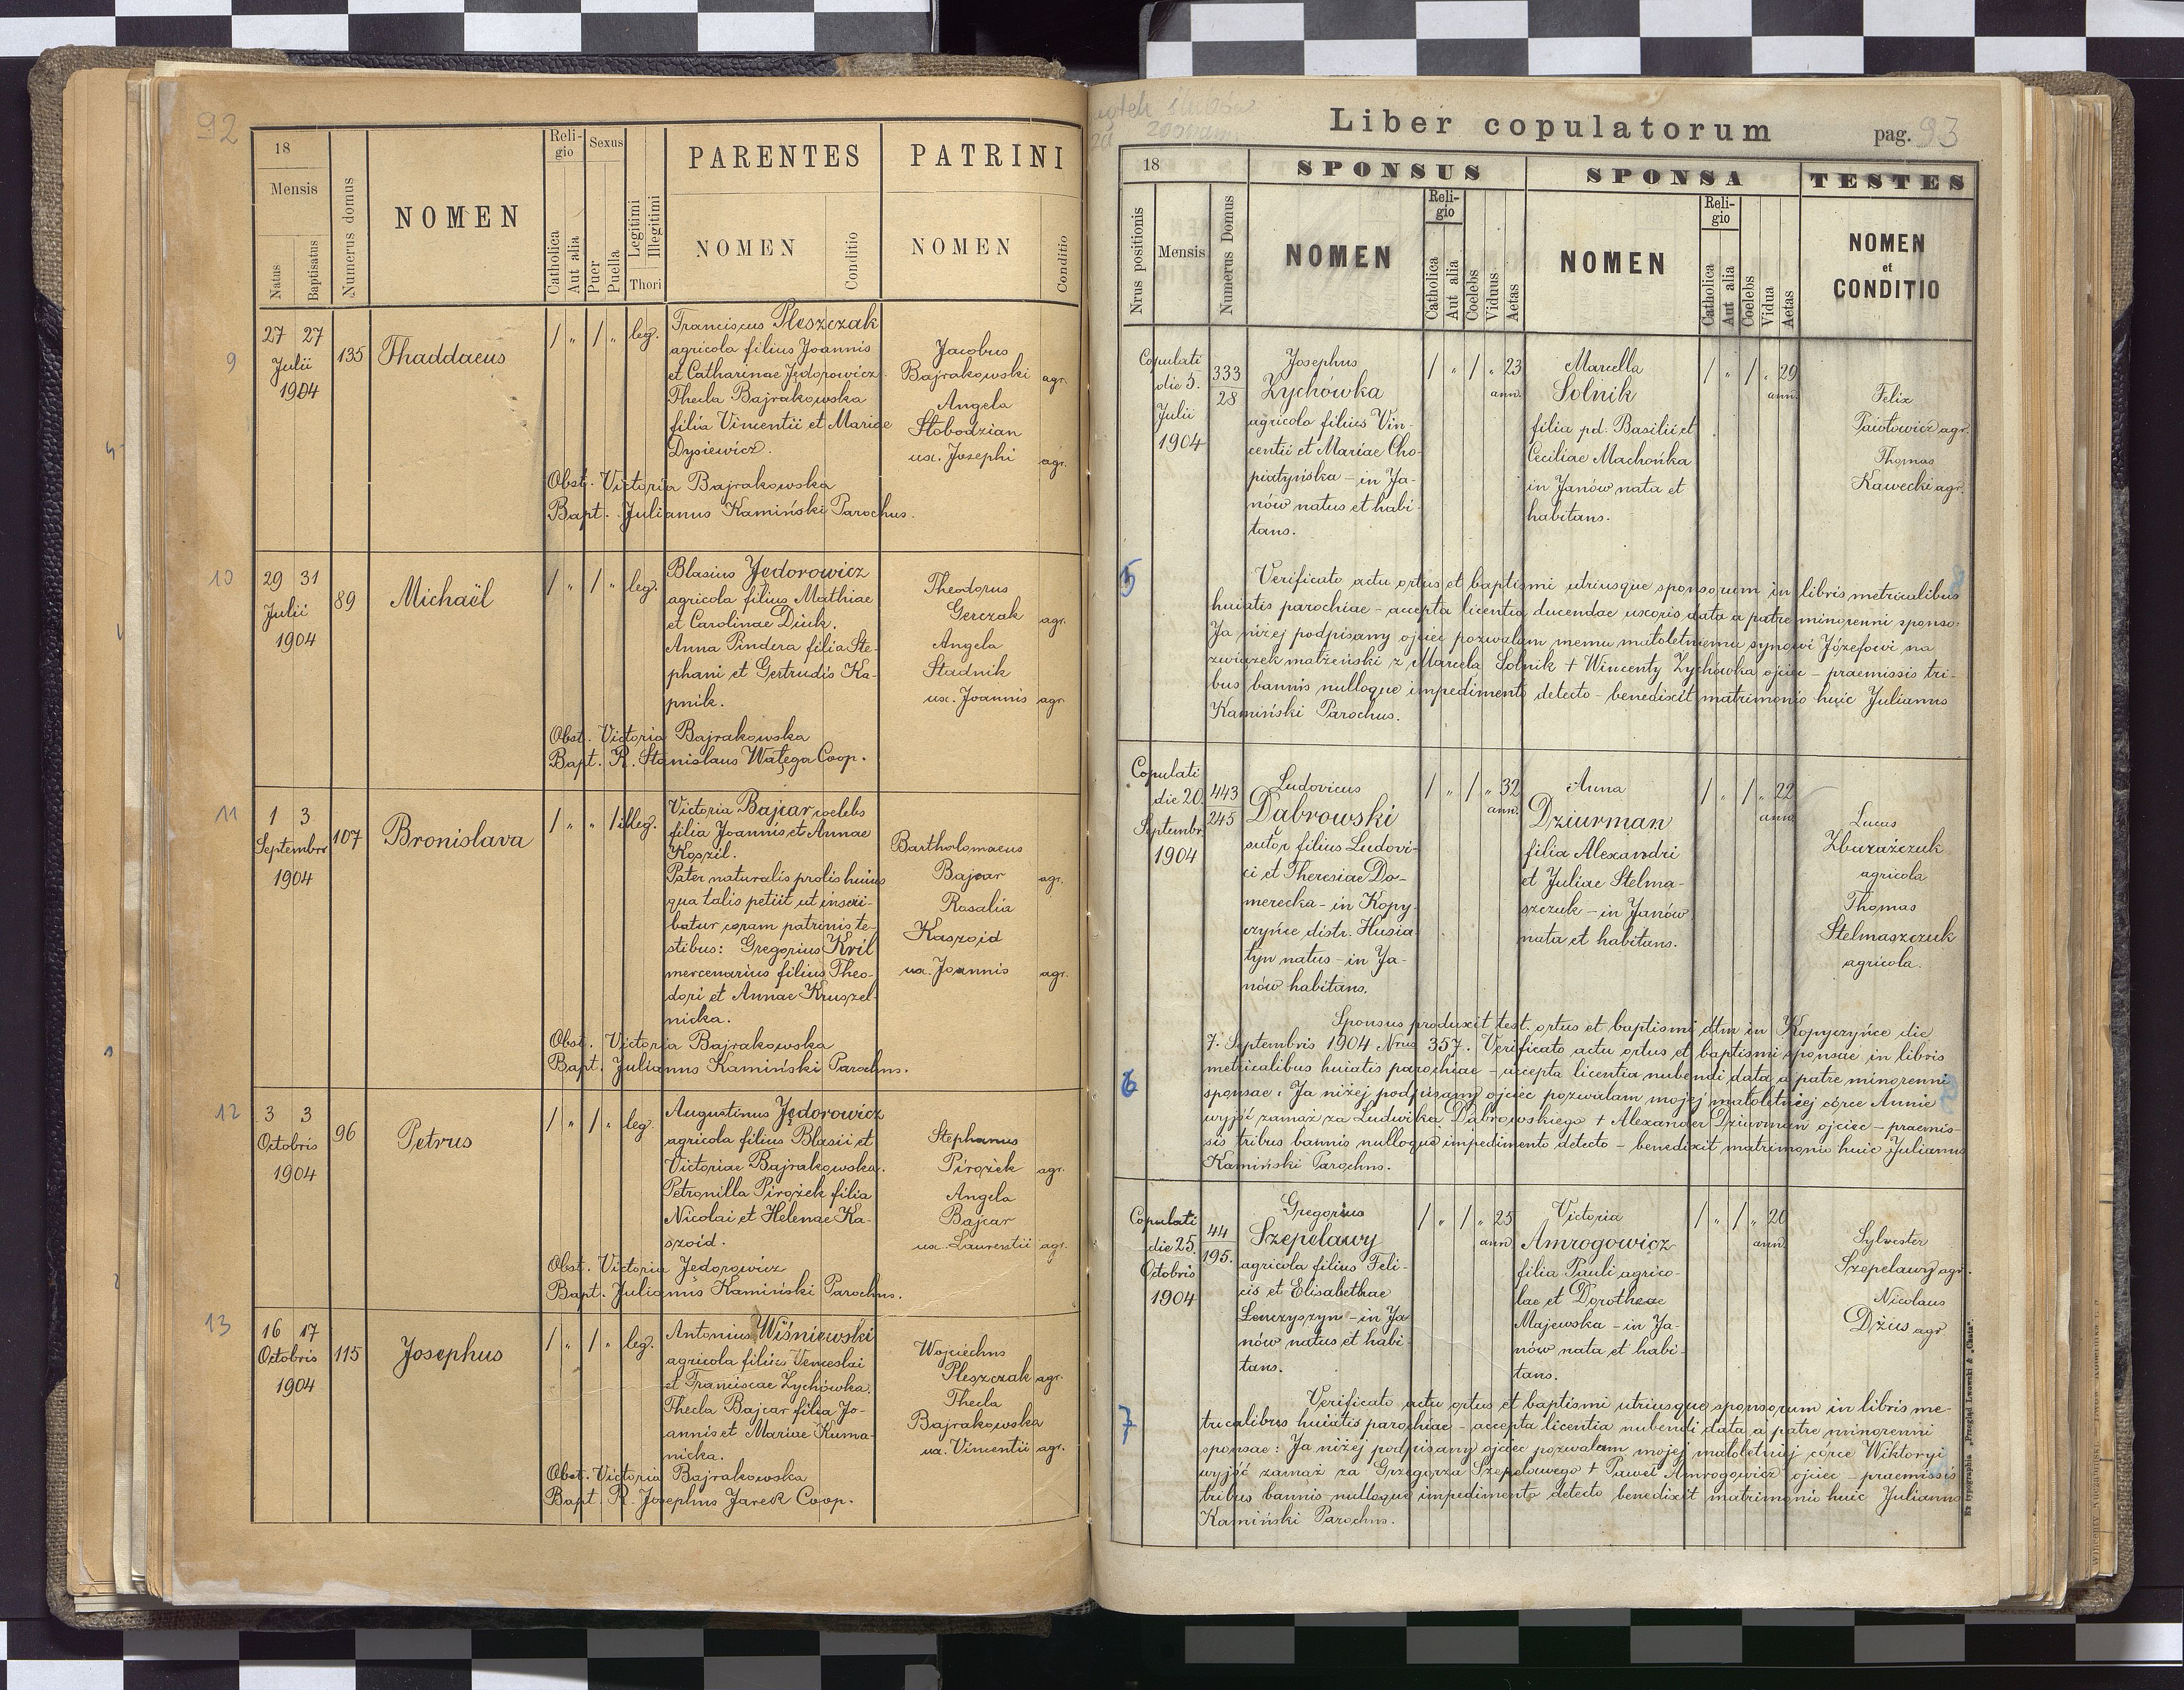 92
18
Mensis
Natus
Baptisatus
Numerus domus
NOMEN
Religio
Catholica
Aut alia
Sexus
Puer
Puella
Legitimi
Illegitimi
Thori
PARENTES
NOMEN
Conditio
PATRINI
NOMEN
Conditio
9
27 27
Julii
1904
135
Thaddaeus
/ „ / „ leg.
Franciscus Pleszczak
agricola filius Joannis
et Catharinae Jedorowicz.
Thecla Bajrakowska
filia Vincentii et Mariae
Dysiewicz.
Jacobus
Bajrakowski agr.
Angela
Słobodzian
ux. Josephi agr.
Obst. Victoria Bajrakowska
Bapt. Julianus Kamiński Parochus.
10
29 31
Julii
1904
89
Michaël
/ „ / „ leg.
Blasius Jedorowicz
agricola filius Mathiae
et Carolinae Diuk.
Anna Pindera filia Ste-
phani et Gertrudis Ka-
pnik.
Theodorus
Gerczak agr.
Angela
Stadnik
ux. Joannis agr.
Obst. Victoria Bajrakowska
Bapt. R. Stanislaus Wałęga Coop.
11
1 3
Septembris
1904
107
Bronislava
/ „ „ / illeg.
Victoria Bajcar coelebs
filia Joannis et Annae
Koszil.
Pater naturalis prolis huius
qua talis petiit ut inscri-
batur coram patrinis te-
stibus: Gregorius Kril
mercenarius filius Theo-
dori et Annae Kruszel-
nicka.
Bartholomaeus
Bajcar agr.
Rosalia
Kaszoid
ux. Joannis agr.
Obst. Victoria Bajrakowska
Bapt. Julianus Kamiński Parochus.
12
3 3
Octobris
1904
96
Petrus
/ „ / „ leg.
Augustinus Jędorowicz
agricola filius Blasii et
Victoriae Bajrakowska.
Petronilla Pirożek filia
Nicolai et Helenae Ka-
szoid.
Stephanus
Pirożek agr.
Angela
Bajcar
ux. Laurentii agr.
Obst. Victoria Jedorowicz
Bapt. Julianus Kamiński Parochus.
13
16 17
Octobris
1904
115
Josephus
/ „ / „ leg.
Antonius Wiśniowski
agricola filius Venceslai
et Franciscae Zychówka.
Thecla Bajcar filia Jo-
annis et Mariae Kuma-
nicka.
Wojciechus
Pleszczak agr.
Thecla
Bajrakowska
ux. Vincentii agr.
Obst. Victoria Bajrakowska
Bapt. R. Josephus Jarek Coop.
Liber copulatorum
pag. 93
18
Nrus positionis
Mensis
Numerus Domus
SPONSUS
NOMEN
Religio
Catholica
Aut alia
Coelebs
Viduus
Aetas
SPONSA
NOMEN
Religio
Catholica
Aut alia
Coelebs
Vidua
Aetas
TESTES
NOMEN
et
CONDITIO
Copulati
die 5.
Julii
1904
333
28
Josephus
Zychówka
agricola filius Vin-
centii et Mariae Cho-
piatyńska – in Ja-
nów natus et habi-
tans.
/ „ / „ 23
ann.
Marcella
Solnik
filia pd. Basilii et
Ceciliae Machońka
in Janów nata et
habitans.
/ „ / „ 29
ann.
Felix
Paiotowicz agr.
Thomas
Kawecki agr.
5
Verificato actu ortus et baptismi utriusque sponsorum in libris metricalibus
huiatis parochiae – accepta licentia ducendae uxoris data a patre minorenni sponso:
Ja niżej podpisany ojciec pozwalam memu małoletniemu synowi Józefowi na
związek małżeński z Marcela Solnik + Wincenty Zychówka ojciec – praemissis tri-
bus bannis nulloque impedimento detecto – benedixit matrimonio huic Julianus
Kamiński Parochus.
Copulati
die 20.
Septembr.
1904
443
245
Ludovicus
Dąbrowski
sutor filius Ludovi-
ci et Theresiae Do-
merecka – in Kopy-
czyńce distr. Husia-
tyn natus – in Ja-
nów habitans.
/ „ / „ 32
ann.
Anna
Dziurman
filia Alexandri
et Juliae Stelma-
szczuk – in Janów
nata et habitans.
/ „ / „ 22
ann.
Lucas
Zbarażczuk
agricola
Thomas
Stelmaszczuk
agricola.
6
Sponsus produxit test. ortus et baptismi dtm in Kopyczyńce die
7. Septembris 1904 Nrus 357. Verificato actu ortus et baptismi sponsae in libris
metricalibus huiatis parochiae – accepta licentia nubendi data a patre minorenni
sponsae: Ja niżej podpisany ojciec pozwalam mojej małoletniej córce Annie
wyjść zamąż za Ludwika Dąbrowskiego + Alexander Dziurman ojciec – praemis-
sis tribus bannis nulloque impedimento detecto – benedixit matrimonio huic Julianus
Kamiński Parochus.
Copulati
die 25.
Octobris
1904
44
195.
Gregorius
Szepelawy
agricola filius Feli-
cis et Elisabethae
Lenczyszyn – in Ja-
nów natus et habi-
tans.
/ „ / „ 25
ann.
Victoria
Amrogowicz
filia Pauli agrico-
lae et Dorotheae
Majewska – in Ja-
nów nata et habi-
tans.
/ „ / „ 20
ann.
Sylvester
Szepelawy agr.
Nicolaus
Dżus agr
7
Verificato actu ortus et baptismi utriusque sponsorum in libris me-
tricalibus huiatis parochiae – accepta licentia nubendi data a patre minorenni
sponsae: Ja niżej podpisany ojciec pozwalam mojej małoletniej córce Wiktoryi
wyjść zamąż za Grzegorza Szepelawego + Paweł Amrogowicz ojciec – praemissis
tribus bannis nulloque impedimento detecto benedixit matrimonio huic Julianus
Kamiński Parochus.
Ex typographia „Przegląd Lwowski & „Chata“.